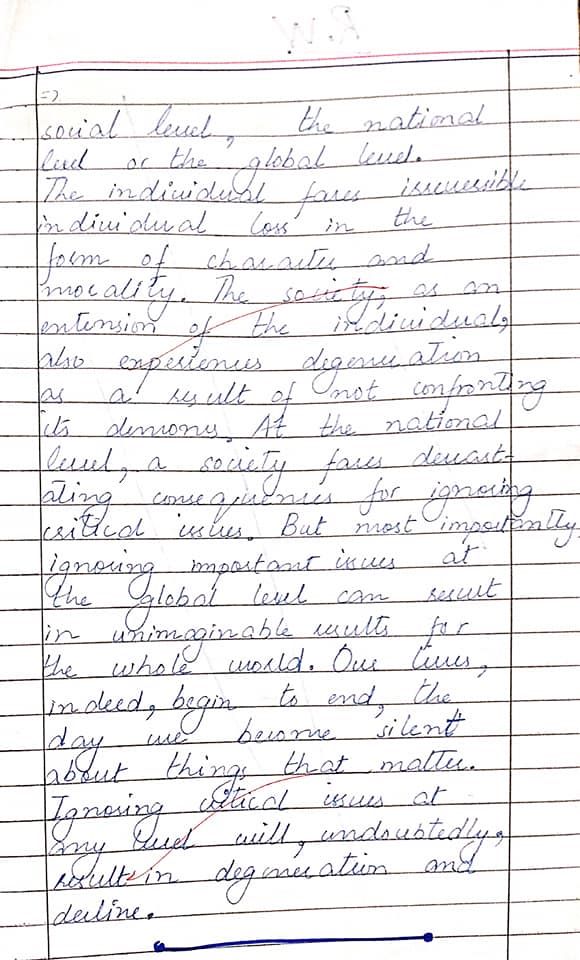 =>
social level, the national
level or the global level.
The individual faces irreversible
individual loss in the
form of character and
morality. The society, as an
extension of the individual,
also experiences degeneration
as a result of not confronting
its demons. At the national
level, a society faces devast-
ating consequences for ignoring
critical issues. But most importantly,
ignoring important issues at
the global level can result
in unimaginable results for
the whole world. Our lives,
indeed, begin to end, the
day we become silent
about things that matter.
Ignoring critical issues at
any level will, undoubtedly,
result in degeneration and
decline.